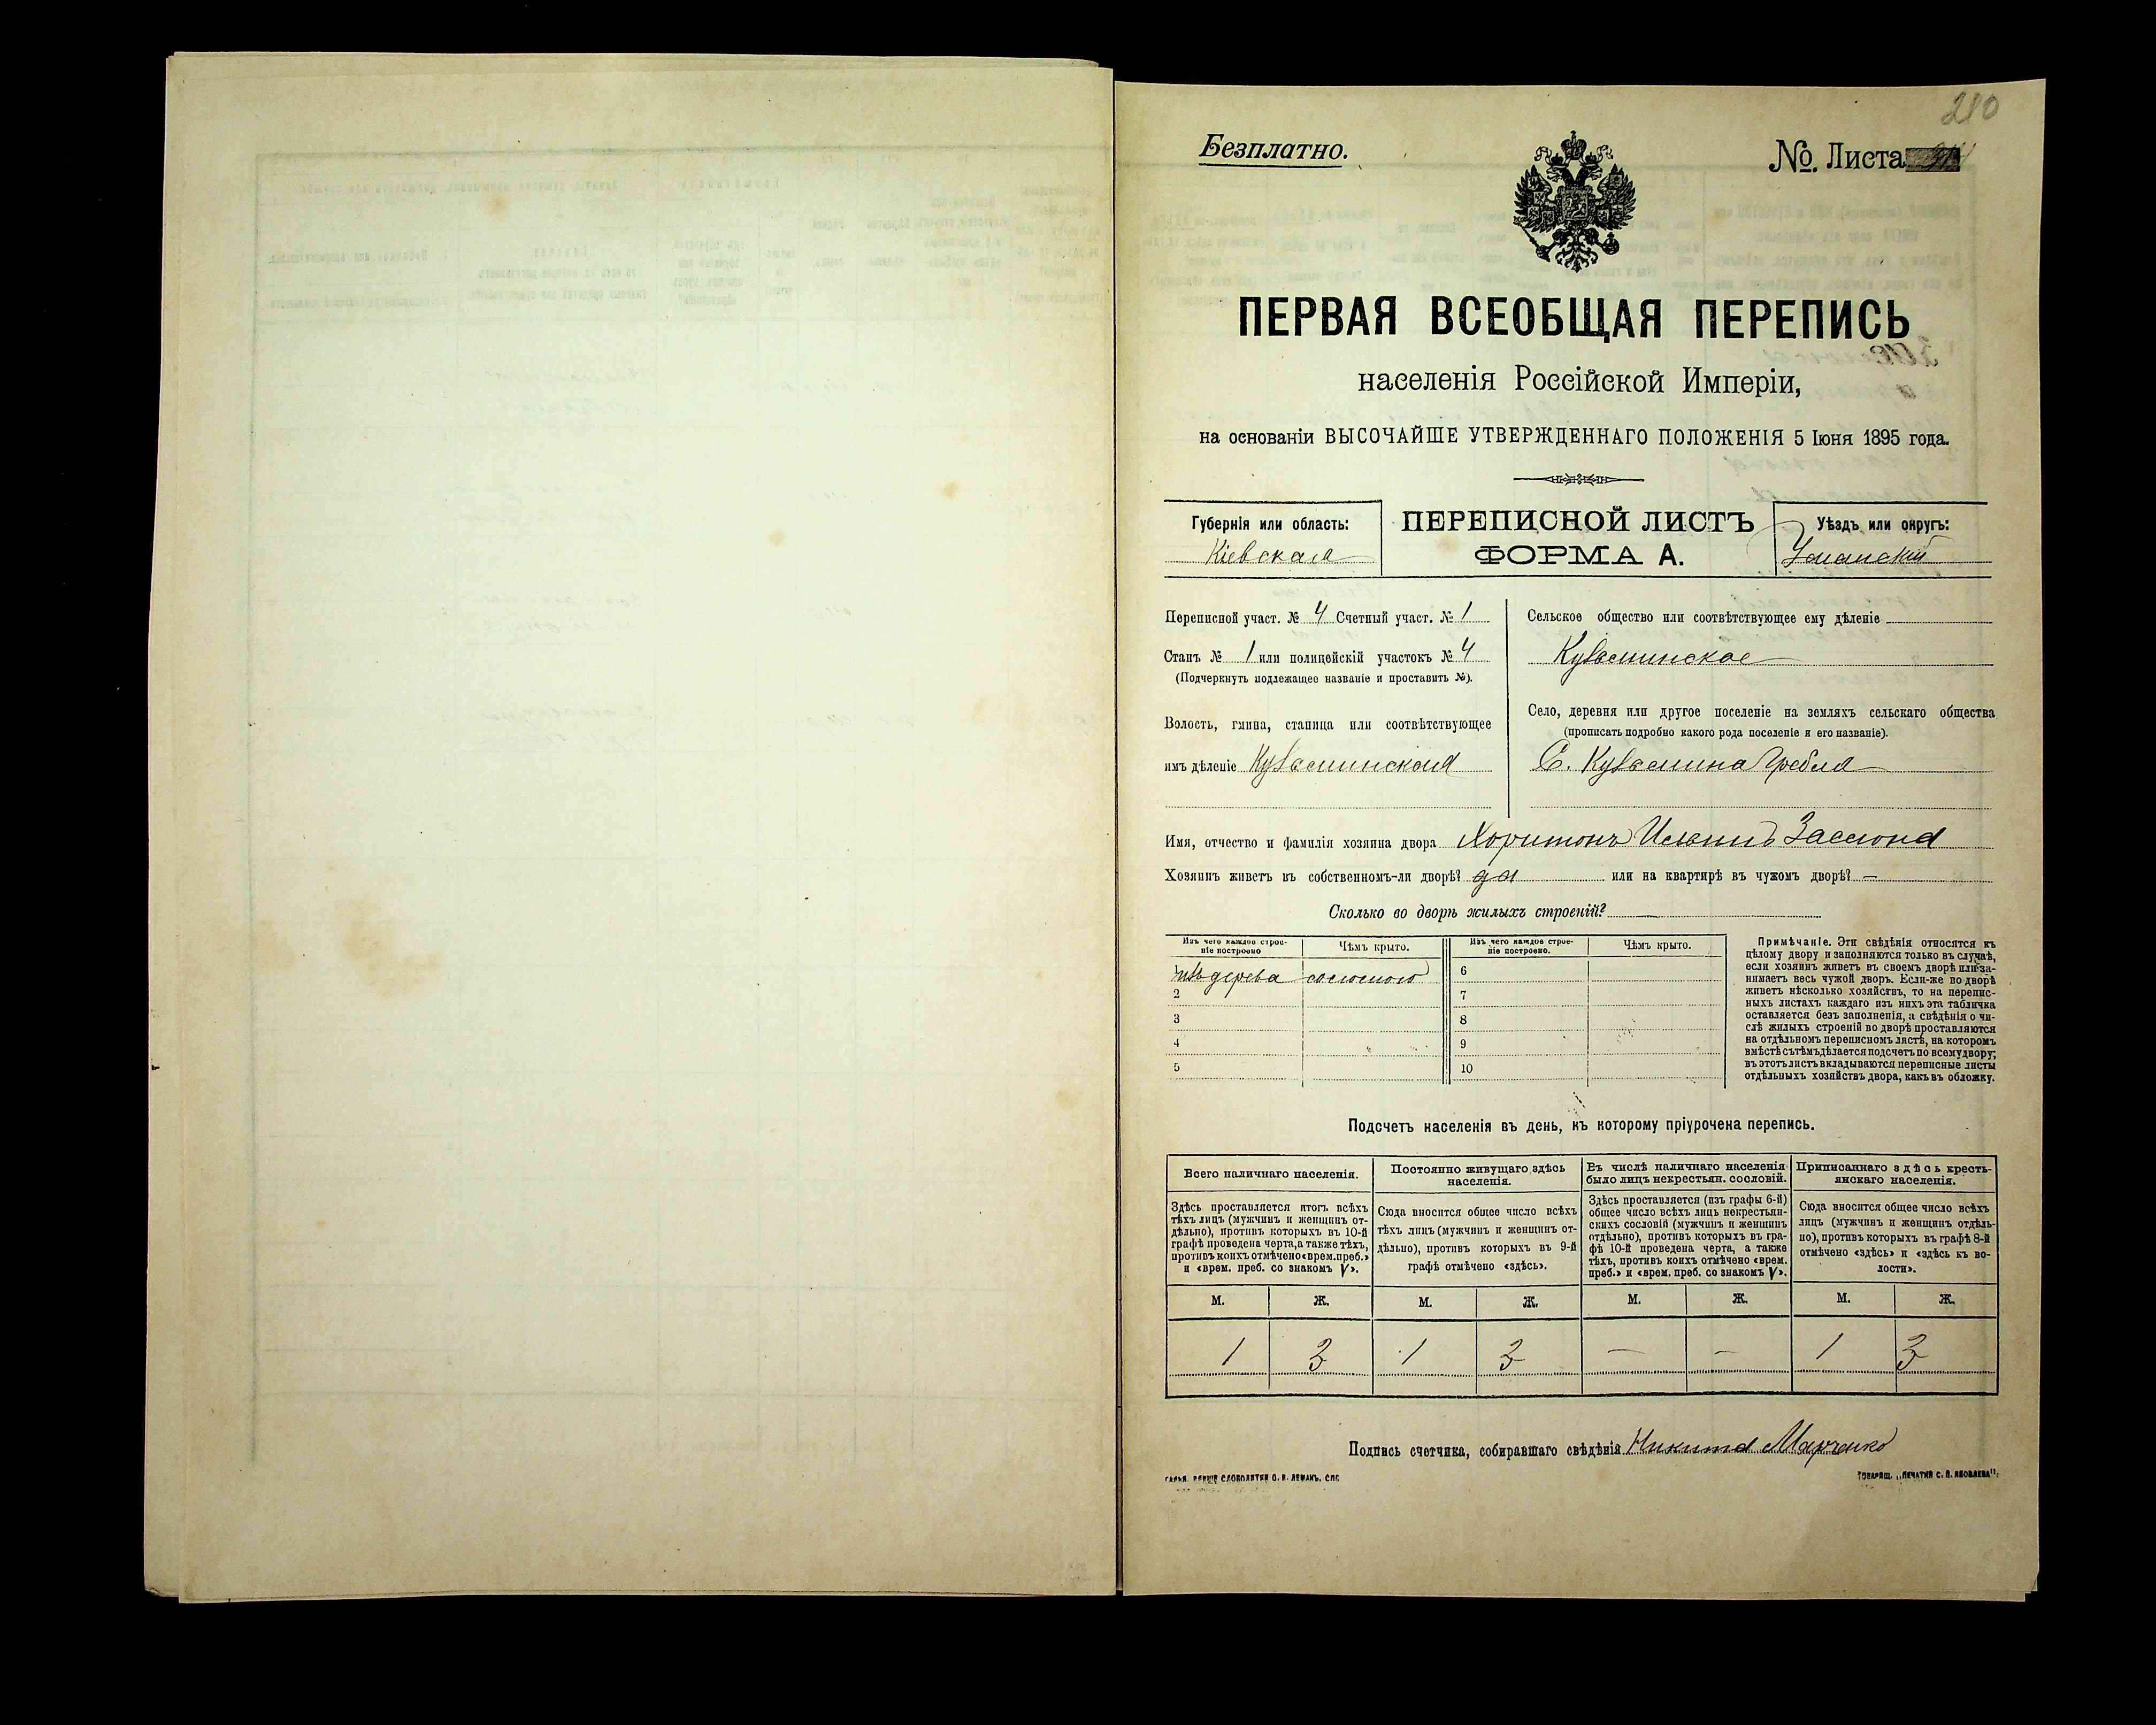 210
Безплатно.
№. Листа
ПЕРВАЯ ВСЕОБЩАЯ ПЕРЕПИСЬ
населенія Россійской Имперіи,
на основаніи ВЫСОЧАЙШЕ УТВЕРЖДЕННАГО ПОЛОЖЕНІЯ 5 Іюня 1895 года.
Губернія или область:
Кіевская
ПЕРЕПИСНОЙ ЛИСТЪ
ФОРМА А.
Уѣздъ или округъ:
Уманскій
Переписной участ. № 4 Счетный участ. № 1
Станъ № 1 или полицейскій участокъ № 4
(Подчеркнуть подлежащее названіе и проставить №).
Волость, гмина, станица или соотвѣтствующее
имъ дѣленіе Кузьминская
Сельское общество или соотвѣтствующее ему дѣленіе
Кузьминское
Село, деревня или другое поселеніе на земляхъ сельскаго общества
(прописать подробно какого рода поселеніе и его названіе).
С. Кузьмина Гребля
Имя, отчество и фамилія хозяина двора Харитонъ Ильинъ
Хозяинъ живетъ въ собственномъ-ли дворѣ? да или на квартирѣ въ чужомъ дворѣ? —
Сколько во дворѣ жилыхъ строеній? —
Изъ чего каждое строе-
ніе построено
Чѣмъ крыто.
Изъ чего каждое строе-
ніе построено.
Чѣмъ крыто.
изъ дерева соломою 6
2 7
3 8
4 9
5 10
Примѣчаніе. Эти свѣдѣнія относятся къ
цѣлому двору и заполняются только въ случаѣ,
если хозяинъ живетъ въ своемъ дворѣ или за-
нимаетъ весь чужой дворъ. Если-же во дворѣ
живетъ нѣсколько хозяйствъ, то на перепис-
ныхъ листахъ каждаго изъ нихъ эта табличка
оставляется безъ заполненія, а свѣдѣнія о чи-
слѣ жилыхъ строеній во дворѣ проставляются
на отдѣльномъ переписномъ листѣ, на которомъ
вмѣстѣ съ тѣмъ дѣлается подсчетъ по всему двору;
въ этотъ листъ вкладываются переписные листы
отдѣльныхъ хозяйствъ двора, какъ въ обложку.
Подсчетъ населенія въ день, къ которому пріурочена перепись.
Всего наличнаго населенія.
Здѣсь проставляется итогъ всѣхъ
тѣхъ лицъ (мужчинъ и женщинъ от-
дѣльно), противъ которыхъ въ 10-й
графѣ проведена черта, а также тѣхъ,
противъ коихъ отмѣчено «врем. преб.»
и «врем. преб. со знакомъ V».
Постоянно живущаго здѣсь
населенія.
Сюда вносится общее число всѣхъ
тѣхъ лицъ (мужчинъ и женщинъ от-
дѣльно), противъ которыхъ въ 9-й
графѣ отмѣчено «здѣсь».
Въ числѣ наличнаго населенія
было лицъ некрестьян. сословій.
Здѣсь проставляется (изъ графы 6-й)
общее число всѣхъ лицъ некрестьян-
скихъ сословій (мужчинъ и женщинъ
отдѣльно), противъ которыхъ въ гра-
фѣ 10-й проведена черта, а также
тѣхъ, противъ коихъ отмѣчено «врем.
преб.» и «врем. преб. со знакомъ V».
Приписаннаго здѣсь кресть-
янскаго населенія.
Сюда вносится общее число всѣхъ
лицъ (мужчинъ и женщинъ отдѣль-
но), противъ которыхъ въ графѣ 8-й
отмѣчено «здѣсь» и «здѣсь къ во-
лости».
М. Ж. М. Ж. М. Ж. М. Ж.
1 3 1 3 — — 1 3
Подпись счетчика, собиравшаго свѣдѣнія Никита Марченко
СЛОВОЛИТНИ О. И. ЛЕМАНЪ, СПБ
ТОВАРИЩ. „ПЕЧАТНЯ С. П. ЯКОВЛЕВА“.